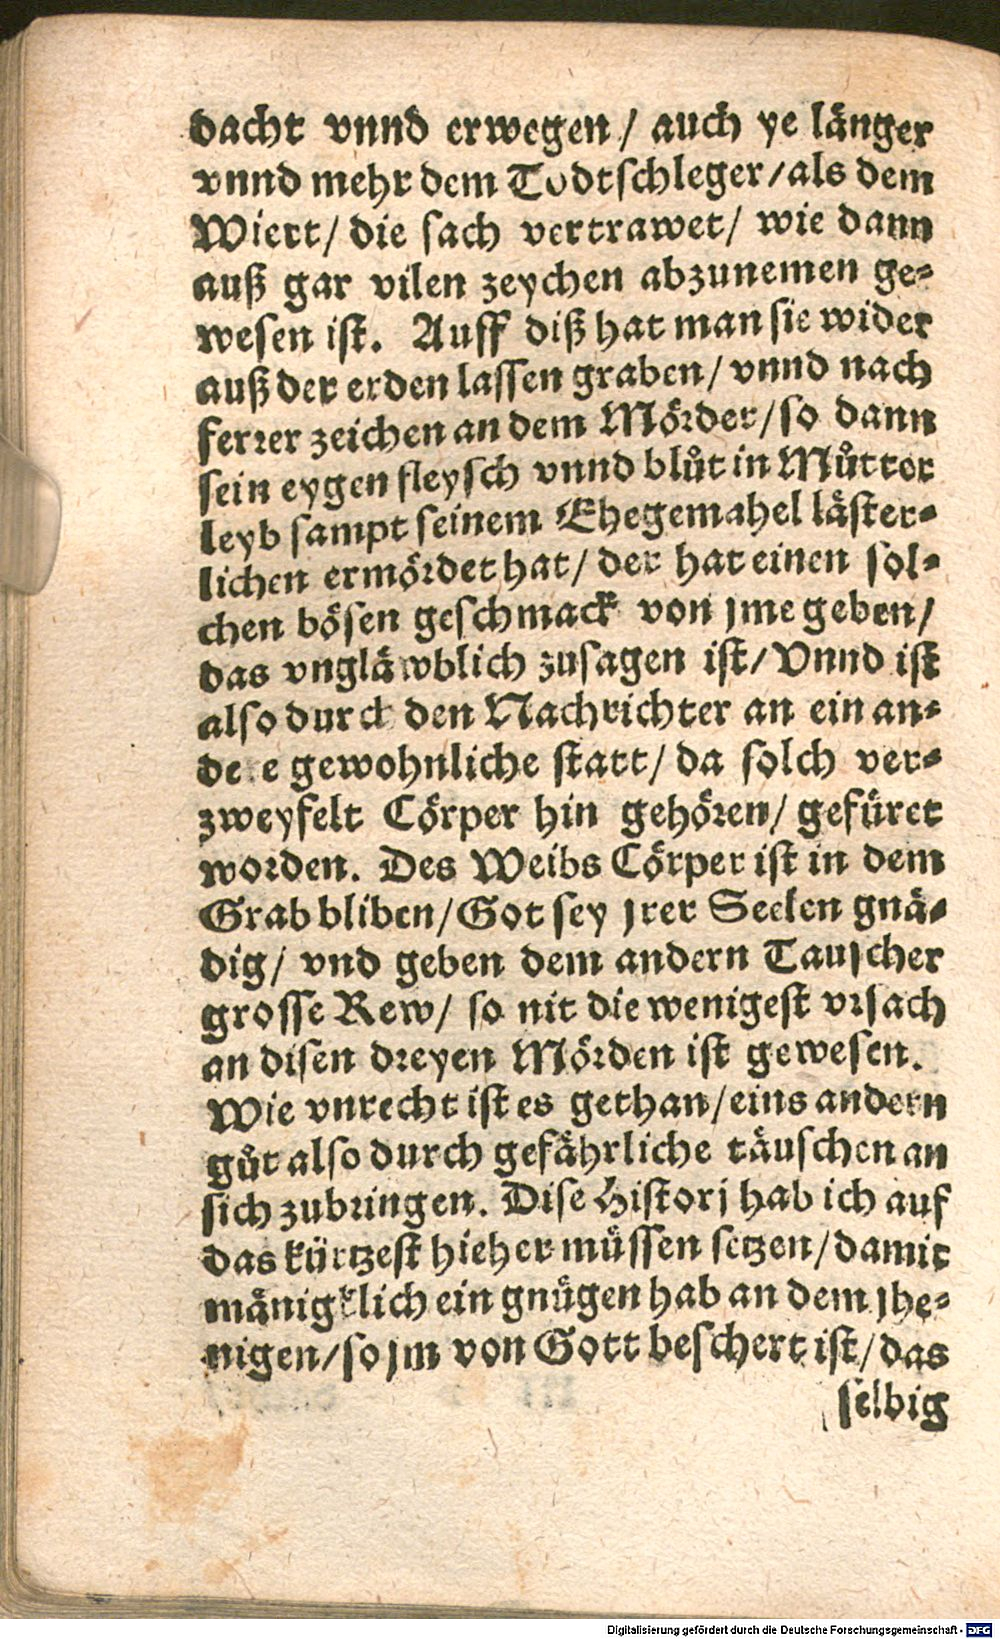 dacht vnnd erwegen / auch ye länger
vnnd mehr dem Todtschleger / als dem
Wiert / die sach vertrawet / wie dann
auß gar vilen zeychen abzunemen ge⸗
wesen ist. Auff diß hat man sie wider
auß der erden lassen graben / vnnd nach
ferrer zeichen an dem Mörder / so dann
sein eygen fleysch vnnd blůt in Můtter
leyb sampt seinem Ehegemahel läster⸗
lichen ermördet hat / der hat einen sol⸗
chen bösen geschmack von jme geben /
das vngläwblich zusagen ist / Vnnd ist
also durch den Nachrichter an ein an⸗
dere gewohnliche statt / da solch ver⸗
zweyfelt Cörper hin gehören / gefüret
worden. Des Weibs Cörper ist in dem
Grab bliben / Got sey jrer Seelen gnä⸗
dig / vnd geben dem andern Tauscher
grosse Rew / so nit die wenigest vrsach
an disen dreyen Mörden ist gewesen.
Wie vnrecht ist es gethan / eins andern
gůt also durch gefährliche täuschen an
sich zubringen. Dise Histori hab ich auf
das kürtzest hieher müssen setzen / damit
mänigklich ein gnügen hab an dem jhe⸗
nigen / so jm von Gott beschert ist / das
selbig
Digitalisierung gefördert durch die Deutsche Forschungsgemeinschaft - DFG